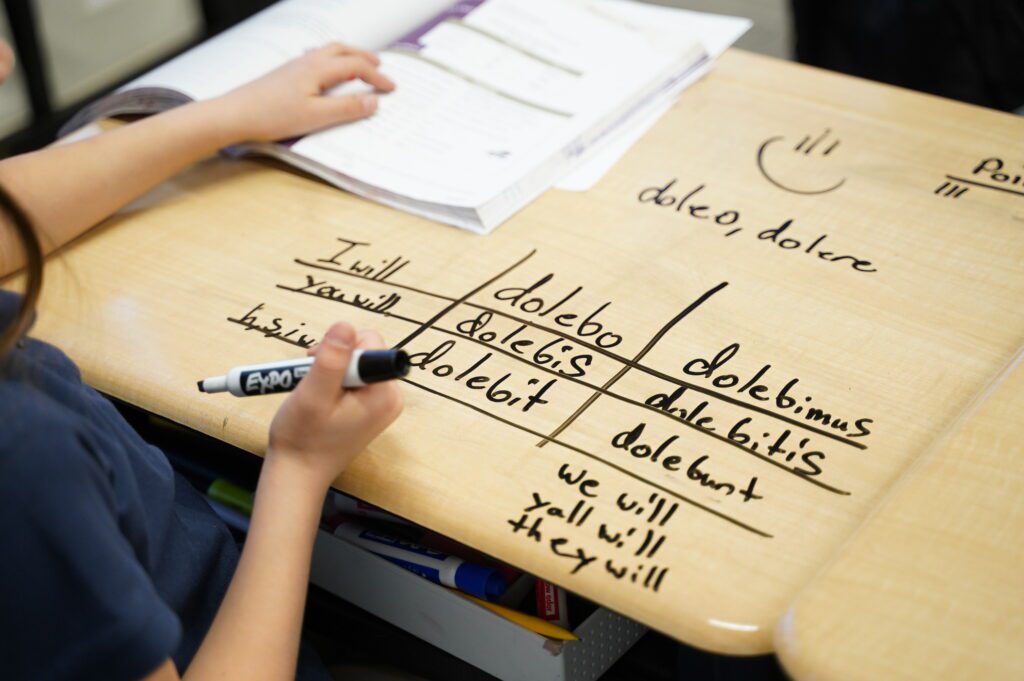 doleo, dolere
I will dolebo dolebimus
you will dolebis dolebitis
h,s,i w dolebit dolebunt
we will
yall will
they will
EXPO